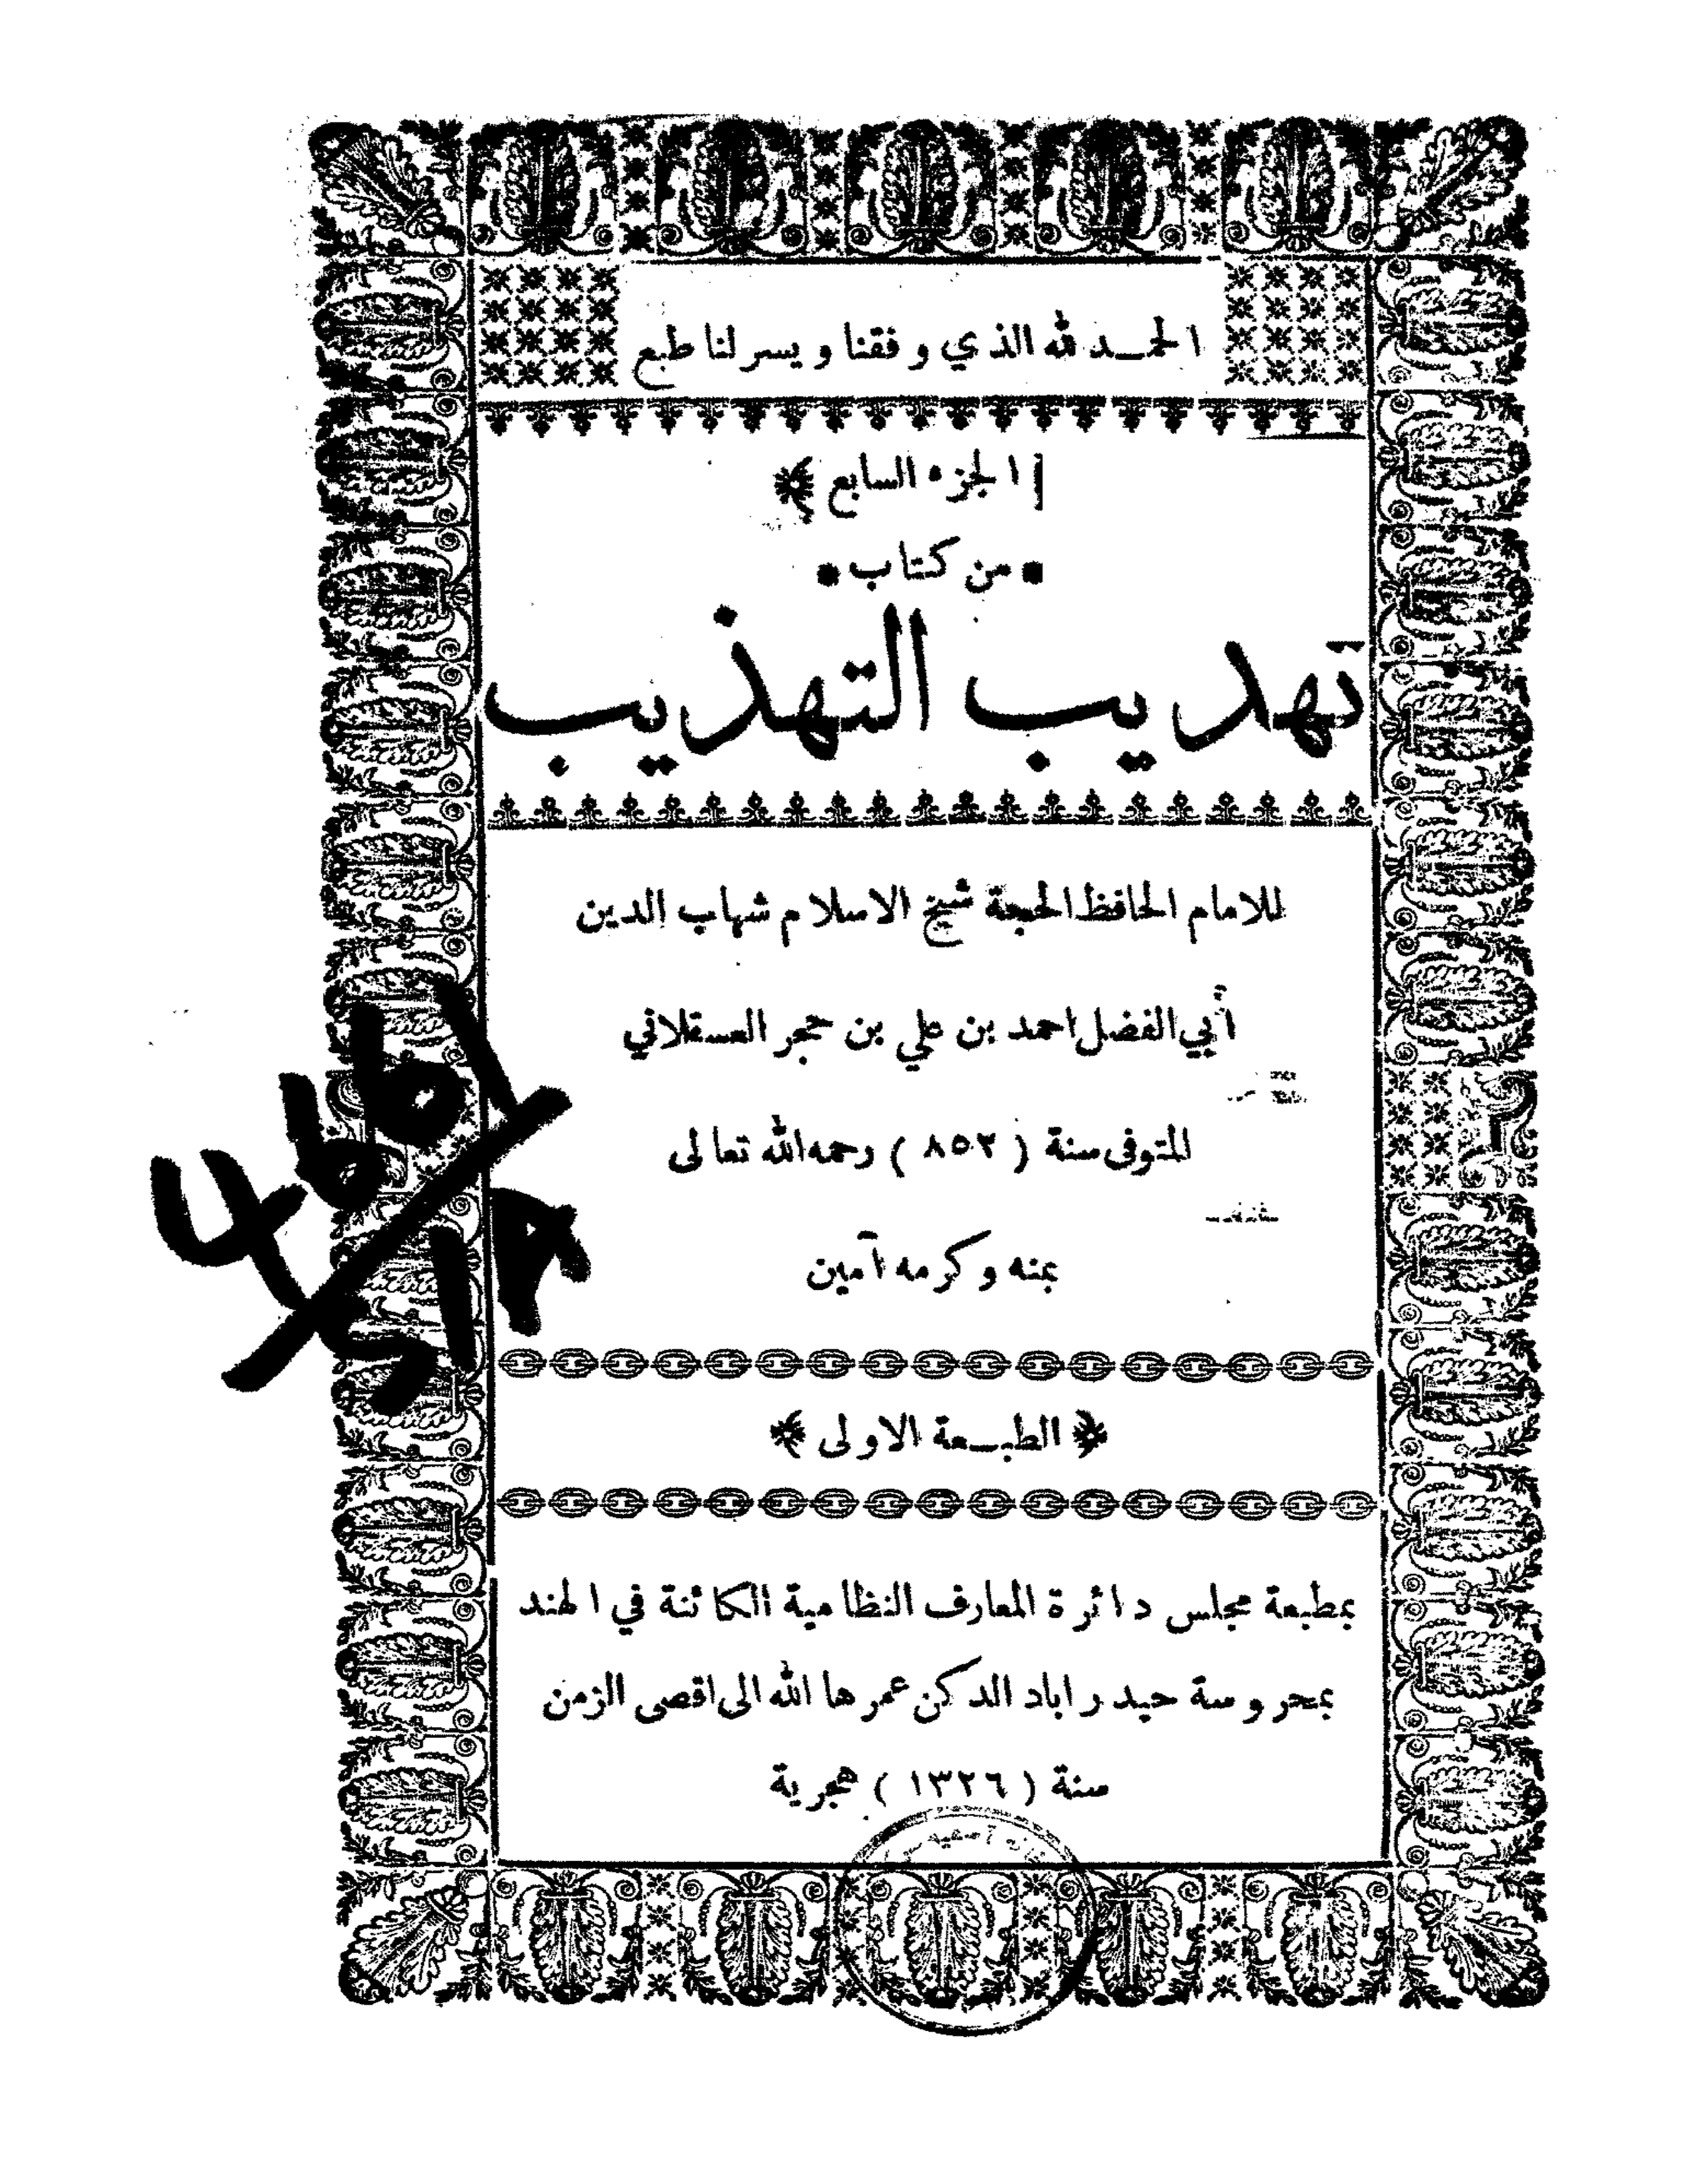 الحمد لله الذي وفقنا ويسر لنا طبع
الجزء السابع
من كتاب
تهذيب التهذيب
للامام الحافظ الحجة شيخ الاسلام شهاب الدين
أبي الفضل احمد بن علي بن حجر العسقلاني
المتوفى سنة ( ٨٥٢ ) رحمه الله تعالى
بمنه وكرمه آمين
الطبعة الاولى
بمطبعة مجلس دائرة المعارف النظامية الكائنة في الهند
بمحروسة حيدراباد الدكن عمرها الله الى اقصى الزمن
سنة ( ١٣٢٦ ) هجرية